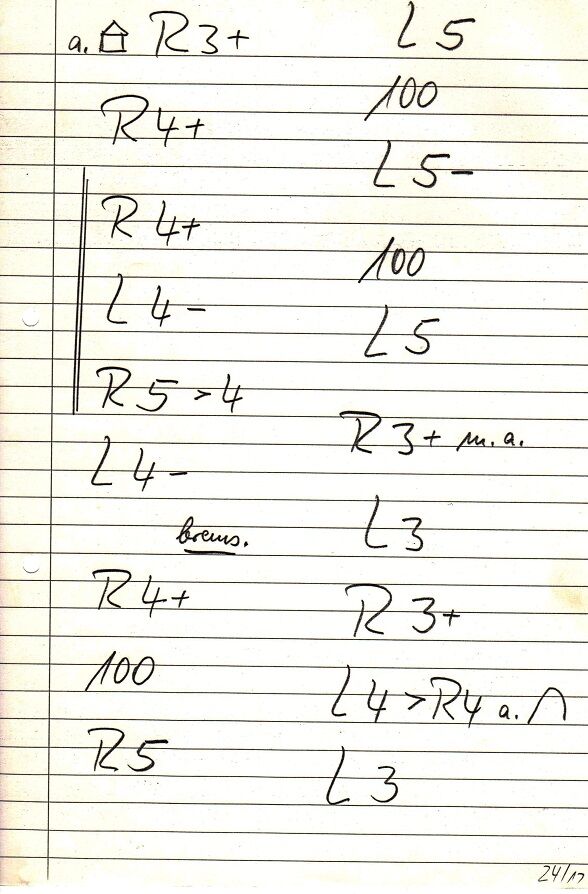 a. R3+
R4+
R 4+
L 4-
R 5 > 4
L 4-
brems.
R 4+
100
R5
L 5
100
L 5-
100
L 5
R3+ m.a.
L 3
R 3+
L4 > R4 a.
L 3